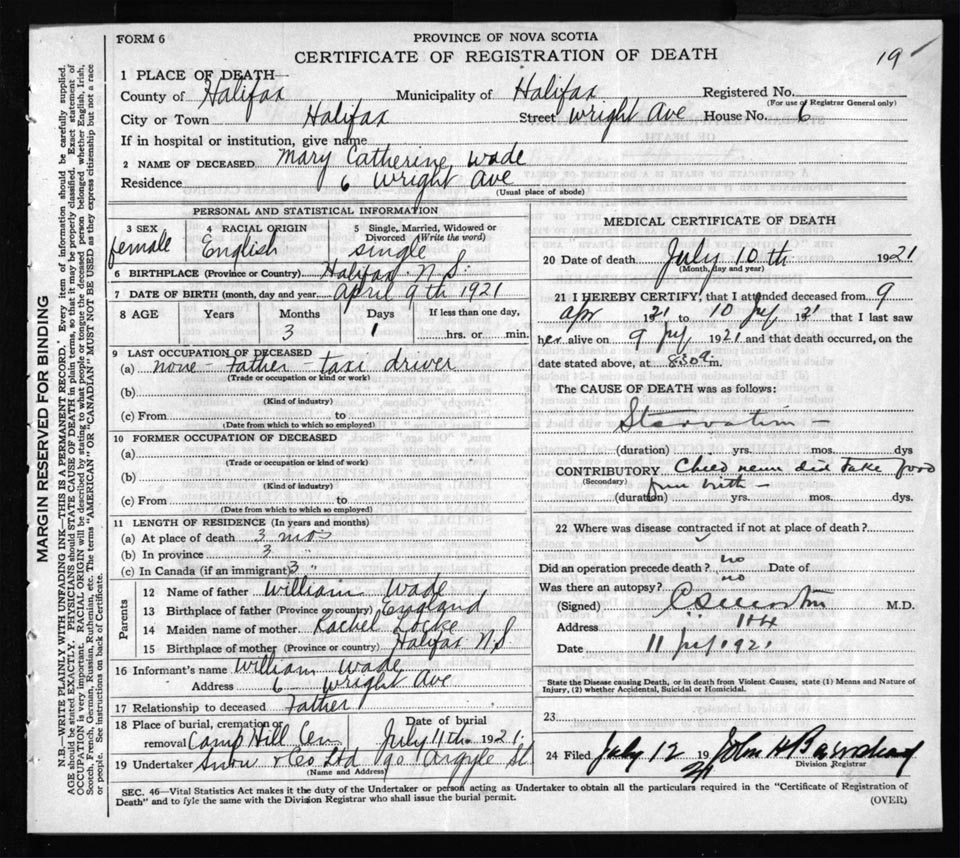 FORM 6
PROVINCE OF NOVA SCOTIA
CERTIFICATE OF REGISTRATION OF DEATH
19
1 PLACE OF DEATH—
County of Halifax Municipality of Halifax Registered No.
(For use of Registrar General only)
City or Town Halifax Street Wright Ave House No. 6
If in hospital or institution, give name
2 NAME OF DECEASED Mary Catherine Wade
Residence 6 Wright Ave
(Usual place of abode)
PERSONAL AND STATISTICAL INFORMATION
3 SEX 4 RACIAL ORIGIN 5 Single, Married, Widowed or Divorced (Write the word)
female English single
6 BIRTHPLACE (Province or Country) Halifax N.S.
7 DATE OF BIRTH (month, day and year) April 9th 1921
8 AGE Years Months Days If less than one day,
3 1 hrs. or min.
9 LAST OCCUPATION OF DECEASED
(a) none - Father - taxi driver
(Trade or occupation or kind or work)
(b)
(Kind of industry)
(c) From to
(Date from which to which so employed)
10 FORMER OCCUPATION OF DECEASED
(a)
(Trade or occupation or kind of work)
(b)
(Kind of industry)
(c) From to
(Date from which to which so employed)
11 LENGTH OF RESIDENCE (In years and months)
(a) At place of death 3 mos
(b) In province 3 "
(c) In Canada (if an immigrant) 3 "
Parents
12 Name of father William Wade
13 Birthplace of father (Province or country) England
14 Maiden name of mother Rachel Locke
15 Birthplace of mother (Province or country) Halifax N.S
16 Informant's name William Wade
Address 6 Wright Ave
17 Relationship to deceased Father
18 Place of burial, cremation or removal Camp Hill Cem Date of burial July 11th 1921.
19 Undertaker Snow & Co Ltd 90 Argyle St
(Name and Address)
MEDICAL CERTIFICATE OF DEATH
20 Date of death July 10th 1921
(Month, day and year)
21 I HEREBY CERTIFY, that I attended deceased from 9
Apr 1921 to 10 July 1921 that I last saw
her alive on 9 July 1921 and that death occurred, on the
date stated above, at m.
The CAUSE OF DEATH was as follows:
Starvation -
(duration) yrs. mos. dys
CONTRIBUTORY Child never did take food
(Secondary) from birth -
(duration) yrs. mos. dys.
22 Where was disease contracted if not at place of death?
Did an operation precede death? no Date of
Was there an autopsy? no
(Signed) M.D.
Address
Date 11 July 1921
State the Disease causing Death, or in death from Violent Causes, state (1) Means and Nature of
Injury, (2) whether Accidental, Suicidal or Homicidal.
23
24 Filed July 12 1921 John H
Division Registrar
SEC. 46—Vital Statistics Act makes it the duty of the Undertaker or person acting as Undertaker to obtain all the particulars required in the "Certificate of Registration of
Death" and to fyle the same with the Division Registrar who shall issue the burial permit.
(OVER)
MARGIN RESERVED FOR BINDING
N.B.—WRITE PLAINLY, WITH UNFADING INK—THIS IS A PERMANENT RECORD. Every item of information should be carefully supplied.
AGE should be stated EXACTLY. PHYSICIANS should STATE CAUSE OF DEATH in plain terms, so that it may be properly classified. Exact statement of
OCCUPATION is very important. RACIAL ORIGIN will be described by stating to what people or tongue the deceased person belonged whether English, Irish,
Scotch, French, German, Russian, Ruthenian, etc. The terms "AMERICAN" OR "CANADIAN" MUST NOT BE USED as they express citizenship but not a race
or people. See instructions on back of Certificate.